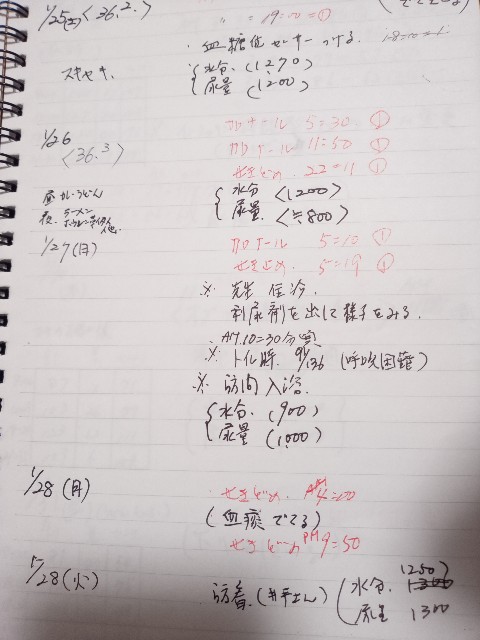 1/25(土)<36.2.>
〃 = 19=00=①
・血糖値センサーつける。
スキヤキ、
水分、(1270)
尿量 (1200)
1/26
<36.3>
カロナール 5=30 ①
カロナール 11=50 ①
せきどめ 22=11 ①
昼 カレーうどん
夜、ラーメン
水分 <1200>
尿量. <≒800>
1/27(月)
カロナール 5=10 ①
せき止め. 5=19 ①
※ 先生 往診.
利尿剤を出して様子をみる.
AM.10=30分頃
※ トイレ 91/136 (呼吸困難)
※ 訪問入浴.
水分、(900)
尿量 (1000)
1/28(月)
・せきどめ. AM4=00
(血痰でてる)
せきどめ PM9=50
1/28(火)
訪看、
水分、1250)
尿量 1300